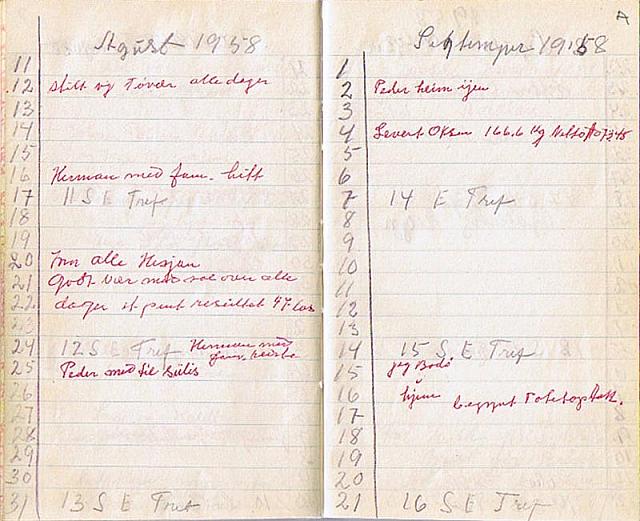 Agust 1958
11
12 stilt og Tövær alle dager
13
14
15
16 Herman med fam. hitt
17 11 S E Tref
18
19
20 Inn alle Hesjan
21 Godt vær med sol over alle
22 dager et pent resultat 97 las
23
24 12 S E Tref Herman med
fam. reiste
25 Peder med til
26
27
28
29
30
31 13 S E Tref
A
Sephtemper 1958
1
2 Peder heim ijen
3
4 Levert Oksen 166.6 Kg
5
6
7 14 E Tref
8
9
10
11
12
13
14 15 S E Tref
15 jeg Bodö
16 hjem begynt
17
18
19
20
21 16 S E Tref